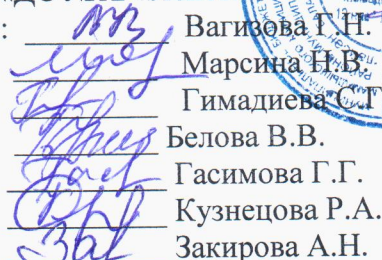 : Вагизова Г.Н.
Марсина Н.В.
Гимадиева С.Г
Белова В.В.
Гасимова Г.Г.
Кузнецова Р.А.
Закирова А.Н.